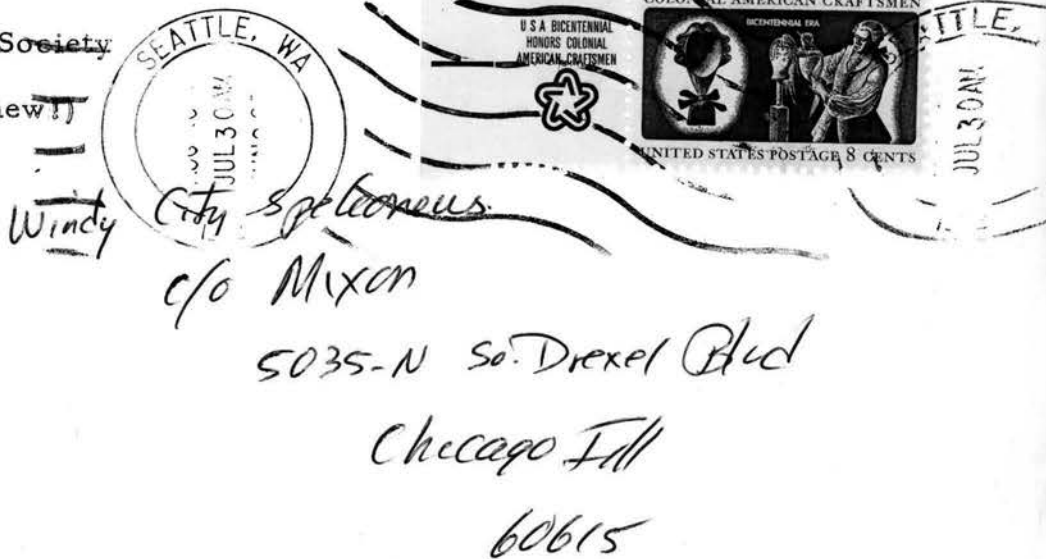 Society
new!)
SEATTLE, WA
JUL 30 AM
U S A BICENTENNIAL
HONORS COLONIAL
AMERICAN CRAFTSMEN
COLONIAL AMERICAN CRAFTSMEN
BICENTENNIAL ERA
UNITED STATES POSTAGE 8 CENTS
JUL 30 AM
Windy City Speleonews
c/o Mixon
5035-N So. Drexel Blvd
Chicago Ill
60615